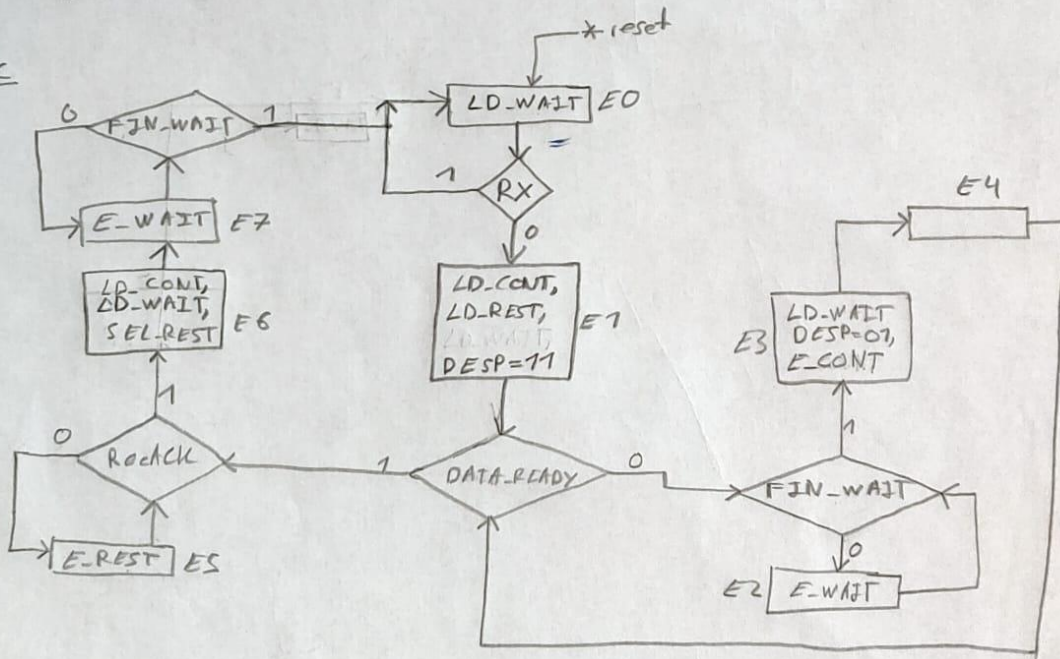 * reset
LD_WAIT E0
RX
1
0
FIN_WAIT
0
1
E_WAIT E7
LD_CONT,
LD_WAIT,
SEL_REST
E6
1
LD_CONT,
LD_REST,
LD_WAIT,
DESP=11
E1
E4
LD_WAIT
DESP=01,
E_CONT
E3
1
0
1
DATA_READY
0
FIN_WAIT
0
E_REST E5
E2 E_WAIT